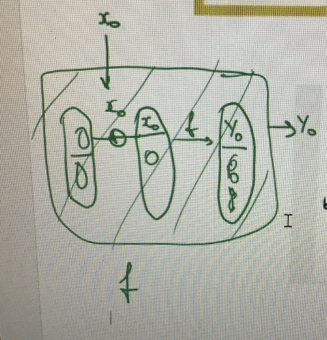 x₀
x₀
0
0
⊕
x₀
0
f
Y₀
Y₀
f